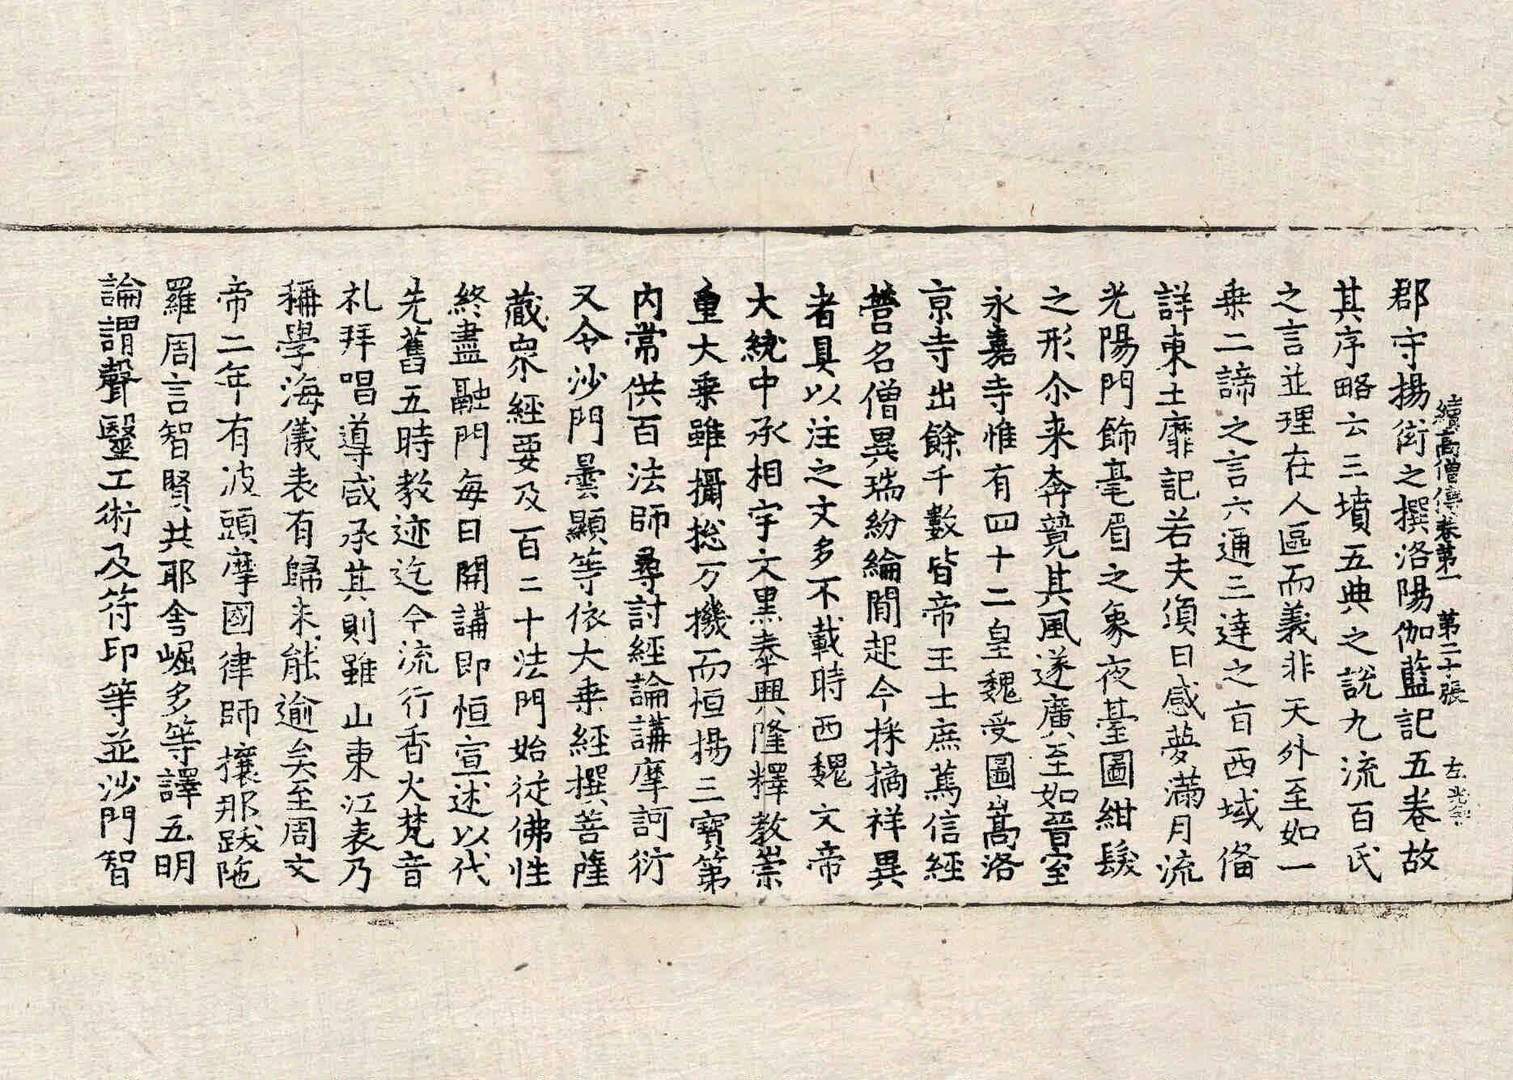 續高僧傳卷第一 第二十張 左
郡守揚衒之撰洛陽伽藍記五卷故
其序略云三墳五典之說九流百氏
之言並理在人區而義非天外至如一
乗二諦之言六通三達之旨西域俻
詳東土靡記若夫須日感夢滿月流
光陽門飾毫眉之象夜臺圖紺髮
之形尒来奔競其風遂廣至如晉室
永嘉寺惟有四十二皇魏受圖嵩洛
京寺出餘千數皆帝王士庶篤信經
營名僧異瑞紛綸間起今採摘祥異
者具以注之文多不載時西魏文帝
大統中丞相宇文黒泰興隆釋教崇
重大乗雖攝捴万機而恒揚三寶第
内常供百法師尋討經論講摩訶衍
又令沙門曇顯等依大乗經撰菩薩
藏衆經要及百二十法門始從佛性
終盡融門每日開講即恒宣述以代
先舊五時教迹迄今流行香火梵音
礼拜唱導咸承其則雖山東江表乃
稱學海儀表有歸未能逾矣至周文
帝二年有波頭摩國律師攘那跋陁
羅周言智賢共耶舍崛多等譯五明
論謂聲毉工術及符印等並沙門智